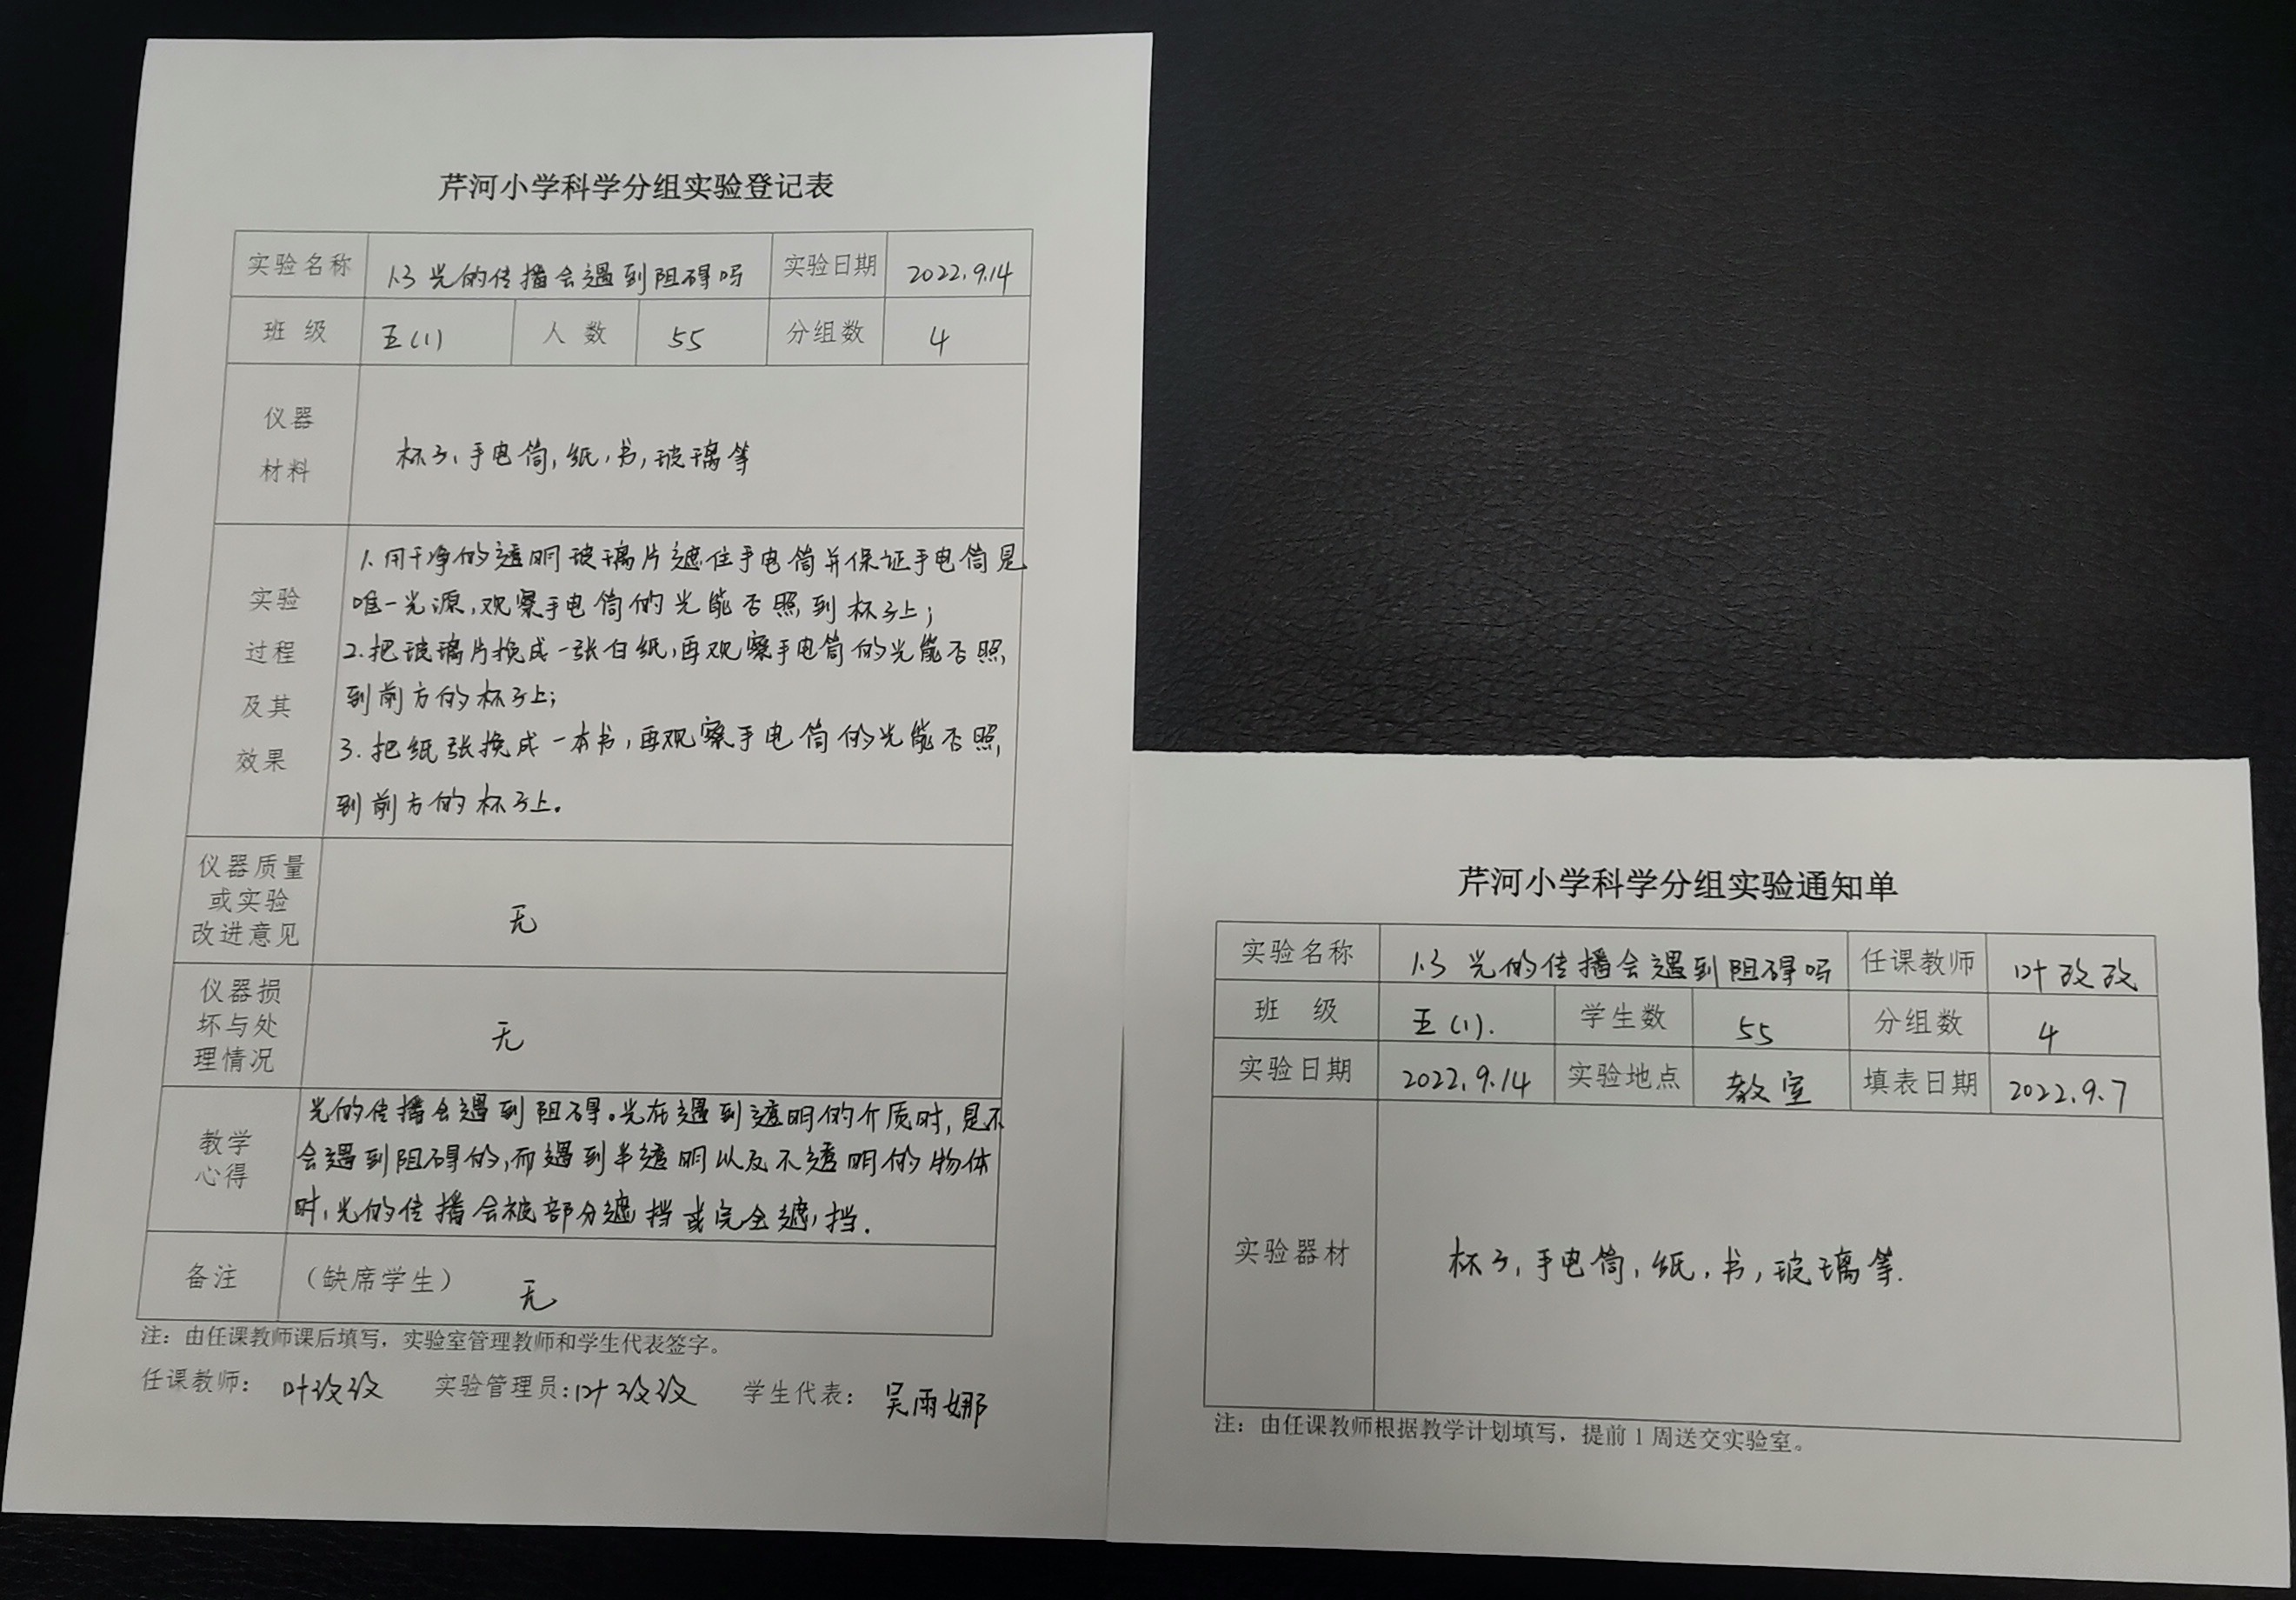 芹河小学科学分组实验登记表
实验名称 1.3 光的传播会遇到阻碍吗 实验日期 2022.9.14
班 级 五(1) 人 数 55 分组数 4
仪器
材料
杯子、手电筒,纸,书,玻璃等
实验
过程
及其
效果
1.用干净的透明玻璃片遮住手电筒并保证手电筒是
唯一光源,观察手电筒的光能否照到杯子上;
2.把玻璃片换成一张白纸,再观察手电筒的光能否照
到前方的杯子上;
3.把纸张换成一本书,再观察手电筒的光能否照
到前方的杯子上。
仪器质量
或实验
改进意见
无
仪器损
坏与处
理情况
无
教学
心得
光的传播会遇到阻碍。光在遇到透明的介质时,是不
会遇到阻碍的,而遇到半透明以及不透明的物体
时,光的传播会被部分遮挡或完全遮挡.
备注 (缺席学生) 无
注:由任课教师课后填写,实验室管理教师和学生代表签字。
任课教师: 叶孜孜 实验管理员: 叶孜孜 学生代表: 吴雨娜
芹河小学科学分组实验通知单
实验名称 1.3 光的传播会遇到阻碍吗 任课教师 叶孜孜
班 级 五(1). 学生数 55 分组数 4
实验日期 2022.9.14 实验地点 教室 填表日期 2022.9.7
实验器材 杯子,手电筒,纸,书,玻璃等.
注:由任课教师根据教学计划填写,提前1周送交实验室。